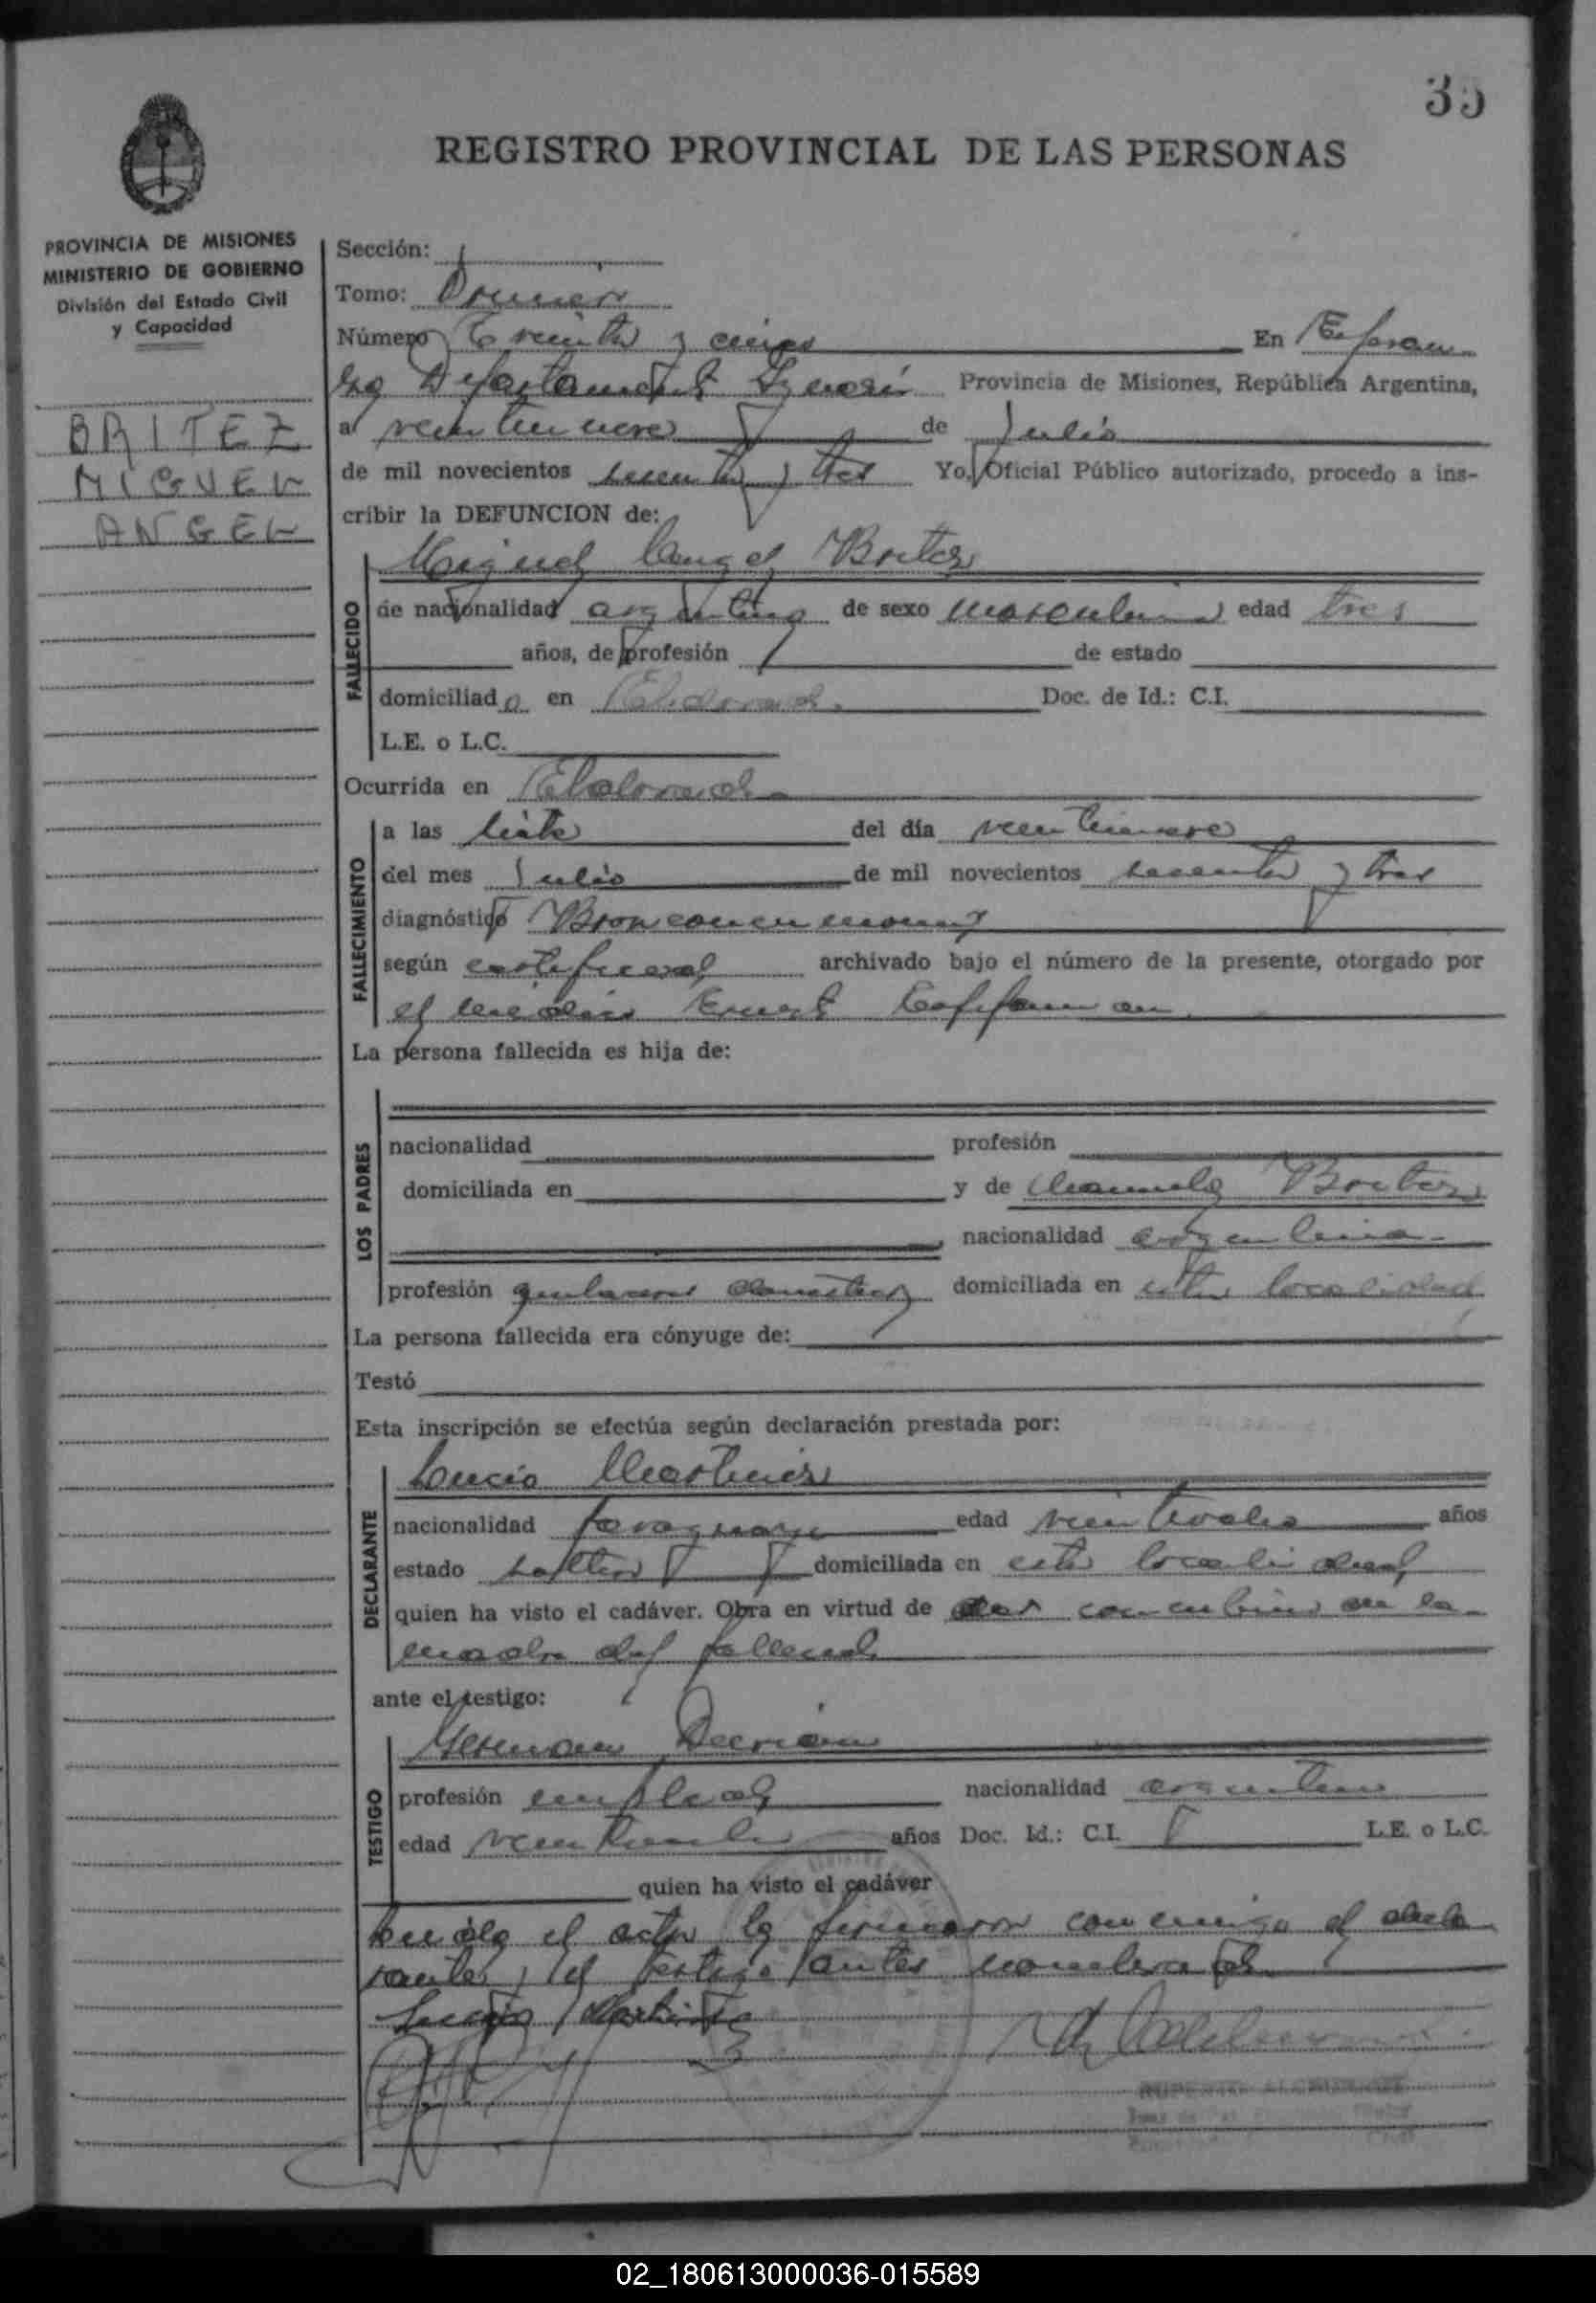 35
REGISTRO PROVINCIAL DE LAS PERSONAS
PROVINCIA DE MISIONES
MINISTERIO DE GOBIERNO
División del Estado Civil
y Capacidad
BRITEZ
MIGUEL
ANGEL
Sección:
Tomo: Primero
Número Treinta y cinco En Esperan
za Departamento Iguazú Provincia de Misiones, República Argentina,
a veintinueve de Julio
de mil novecientos sesenta y tres Yo, Oficial Público autorizado, procedo a ins-
cribir la DEFUNCION de:
Miguel Angel Britez
FALLECIDO
de nacionalidad argentino de sexo masculino edad tres
años, de profesión de estado
domiciliado en Eldorado. Doc. de Id.: C.I.
L.E. o L.C.
Ocurrida en Eldorado
FALLECIMIENTO
a las siete del día veintinueve
del mes Julio de mil novecientos sesenta y tres
diagnóstico
según certificado archivado bajo el número de la presente, otorgado por
el médico
La persona fallecida es hija de:
LOS PADRES
nacionalidad profesión
domiciliada en y de Manuela Britez
nacionalidad argentina
profesión quehaceres domesticos domiciliada en esta localidad
La persona fallecida era cónyuge de:
Testó
Esta inscripción se efectúa según declaración prestada por:
DECLARANTE
Lucio Martinez
nacionalidad paraguayo edad años
estado soltero domiciliada en esta localidad
quien ha visto el cadáver. Obra en virtud de ser concubino de la
madre del fallecido
ante el testigo:
TESTIGO
German
profesión empleado nacionalidad argentino
edad años Doc. Id.: C.I. L.E. o L.C.
quien ha visto el cadáver
Leida el acta la firmaron conmigo el decla
rante y el testigo antes nombrado.
Lucio Martinez
02_180613000036-015589